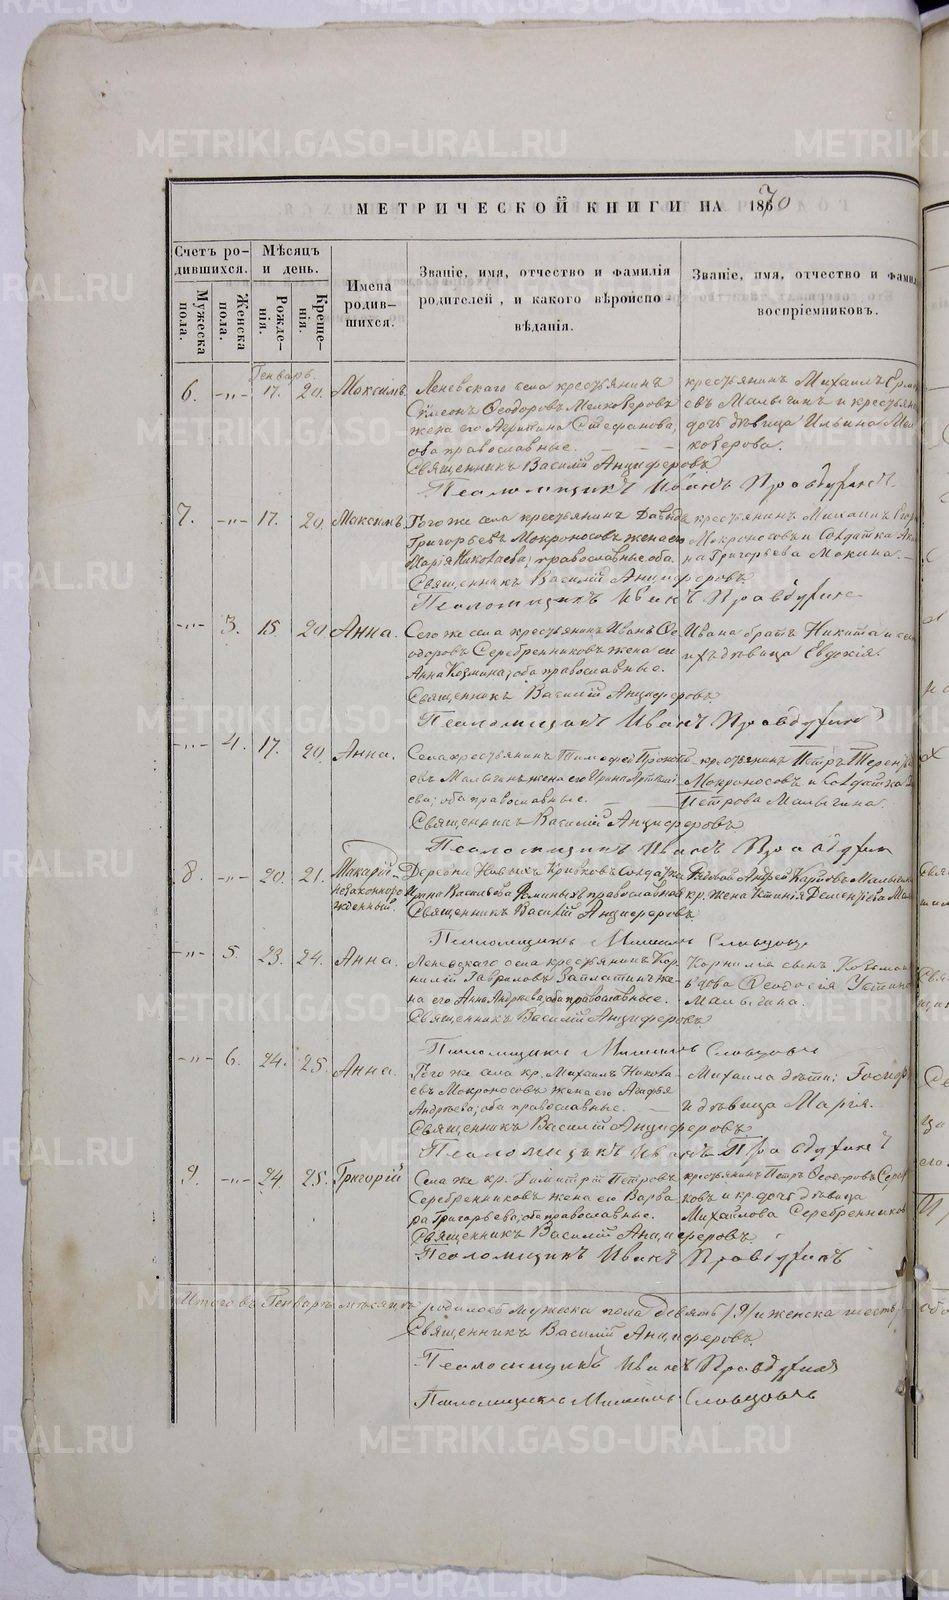 МЕТРИЧЕСКОЙ КНИГИ НА 1870
Счетъ ро-
дившихся.
Мужеска
пола.
Женска
пола.
Мѣсяцъ
и день.
Рожде-
нія.
Креще-
нія.
Имена
родив-
шихся.
Званіе, имя, отчество и фамилія
родителей, и какого вѣроиспо-
вѣданія.
Званіе, имя, отчество и фами
воспріемниковъ.
Генварь.
6. -„- 17. 20. Максимъ. Леневскаго села крестьянинъ
Симеонъ Ѳеодоровъ Мелковеровъ
жена его Стефанова,
оба православные.
крестьянинъ Михаилъ
евъ Малыгинъ и крестьян
дочь дѣвица Ильина Мел
коверова.
Священникъ Василій Анциферовъ
Псаломщикъ Иванъ Правдухинъ
7. -„- 17. 20 Максимъ. Того же села крестьянинъ Давыдъ
Григорьевъ Мокроносовъ жена его
Марія Николаева; православные оба.
крестьянинъ Михаилъ
Мокроносовъ и Солдатка
на Григорьева Мокина.
Священникъ Василій Анциферовъ
Псаломщикъ Иванъ Правдухинъ
-„- 3. 15. 20 Анна. Сего же села крестьянинъ Иванъ Ѳе
одоровъ Серебренниковъ жена его
Анна Козмина; оба православные.
Ивана братъ Никита и
ихъ дѣвица Евдокія.
Священникъ Василій Анциферовъ
Псаломщикъ Иванъ Правдухинъ
-„- 4. 17. 20. Анна. Села крестьянинъ Тимофей Прокопь
евъ Малыгинъ жена его Ирина Артемі
ева; оба православные.
крестьянинъ Петръ Терен
Мокроносовъ и Солдатка
Петрова Малыгина.
Священникъ Василій Анциферовъ
Псаломщикъ Иванъ Правдухин
8. -„- 20. 21. Макарій-
незаконноро
жденный.
Деревни Новыхъ Кривковъ Солдатка
Ирина Васильева православная
Рядовой Андрей Карповъ Малыгин
кр. жена Устинія Дементіева
Священникъ Василій Анциферовъ
Псаломщикъ Михаилъ Словцовъ
-„- 5. 23. 24. Анна. Леневскаго села крестьянинъ Кор-
нилій Гавриловъ Заплатинъ же-
на его Анна Андреева; оба православные.
Корнилія сынъ Козьма
вдова Ѳеодосія Устино
Малыгина.
Священникъ Василій Анциферовъ
Псаломщикъ Михаилъ Словцовъ
-„- 6. 24. 25. Анна. Того же села кр. Михаилъ Никола-
евъ Мокроносовъ жена его Агафья
Андреева; оба православные.
Михаила дѣти: Іосиф
и дѣвица Марія.
Священникъ Василій Анциферовъ
Псаломщикъ Иванъ Правдухинъ
9. -„- 24. 25. Григорій Села же кр. Димитрій Петровъ
Серебренниковъ жена его Варва-
ра Григорьева; оба православные.
крестьянинъ Петръ Ѳеодоровъ Сереб
ковъ и кр. дочь дѣвица
Михайлова Серебренников
Священникъ Василій Анциферовъ
Псаломщикъ Иванъ Правдухинъ
Итого въ Генварѣ мѣсяцѣ родилось мужеска пола девять /9/ и женска шесть
Священникъ Василій Анциферовъ.
Псаломщикъ Иванъ Правдухинъ
Псаломщикъ Михаилъ Словцовъ
METRIKI.GASO-URAL.RU